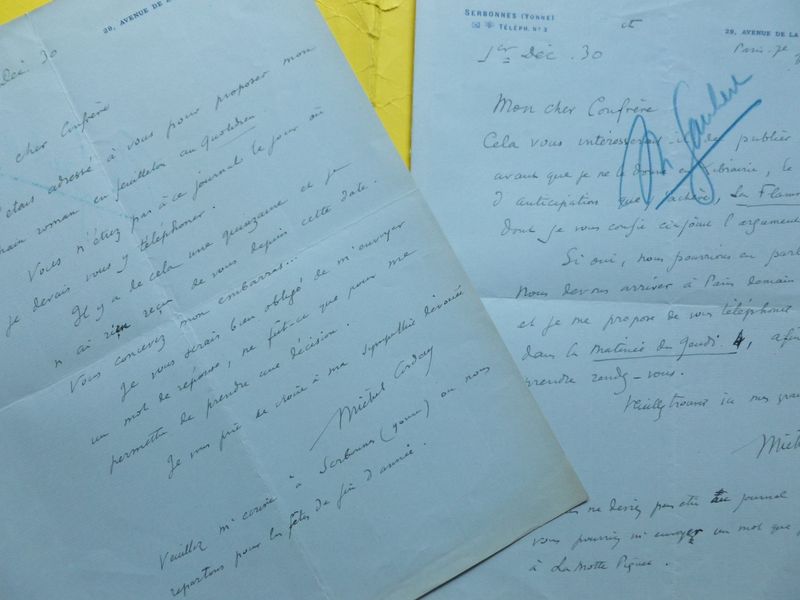 29, AVENUE DE
Déc. 30
cher Confrère
étais adressé à vous pour proposer mon
roman en feuilleton au Quotidien
Vous n'étiez pas à ce journal le jour où
je devais vous y téléphoner.
Il y a de cela une quinzaine et je
n'ai rien reçu de vous depuis cette date.
Vous concevez mon embarras...
Je vous serais bien obligé de m'envoyer
un mot de réponse, ne fût-ce que pour me
permettre de prendre une décision.
Je vous prie de croire à ma sympathie dévouée
Michel Corday
Veuillez m'écrire à Serbonnes (Yonne) où nous
repartons pour les fêtes de fin d'année.
SERBONNES (YONNE)
TÉLÉPH. N° 2
et
29, AVENUE DE LA
Paris. 7e
1er Déc. 30
Mon cher Confrère
Cela vous intéresserait il de publier
avant que je ne le donne en librairie, le
d'anticipation que j'achève, La Flamme
dont je vous confie ci-joint l'argument
Si oui, nous pourrions en parler
Nous devons arriver à Paris demain
et je me propose de vous téléphoner
dans la matinée du Jeudi 4, afin
prendre rendez-vous.
Veuillez trouver ici mes
Michel
ne deviez pas être au journal
vous pourriez m'envoyer un mot que
à La Motte Picquet.